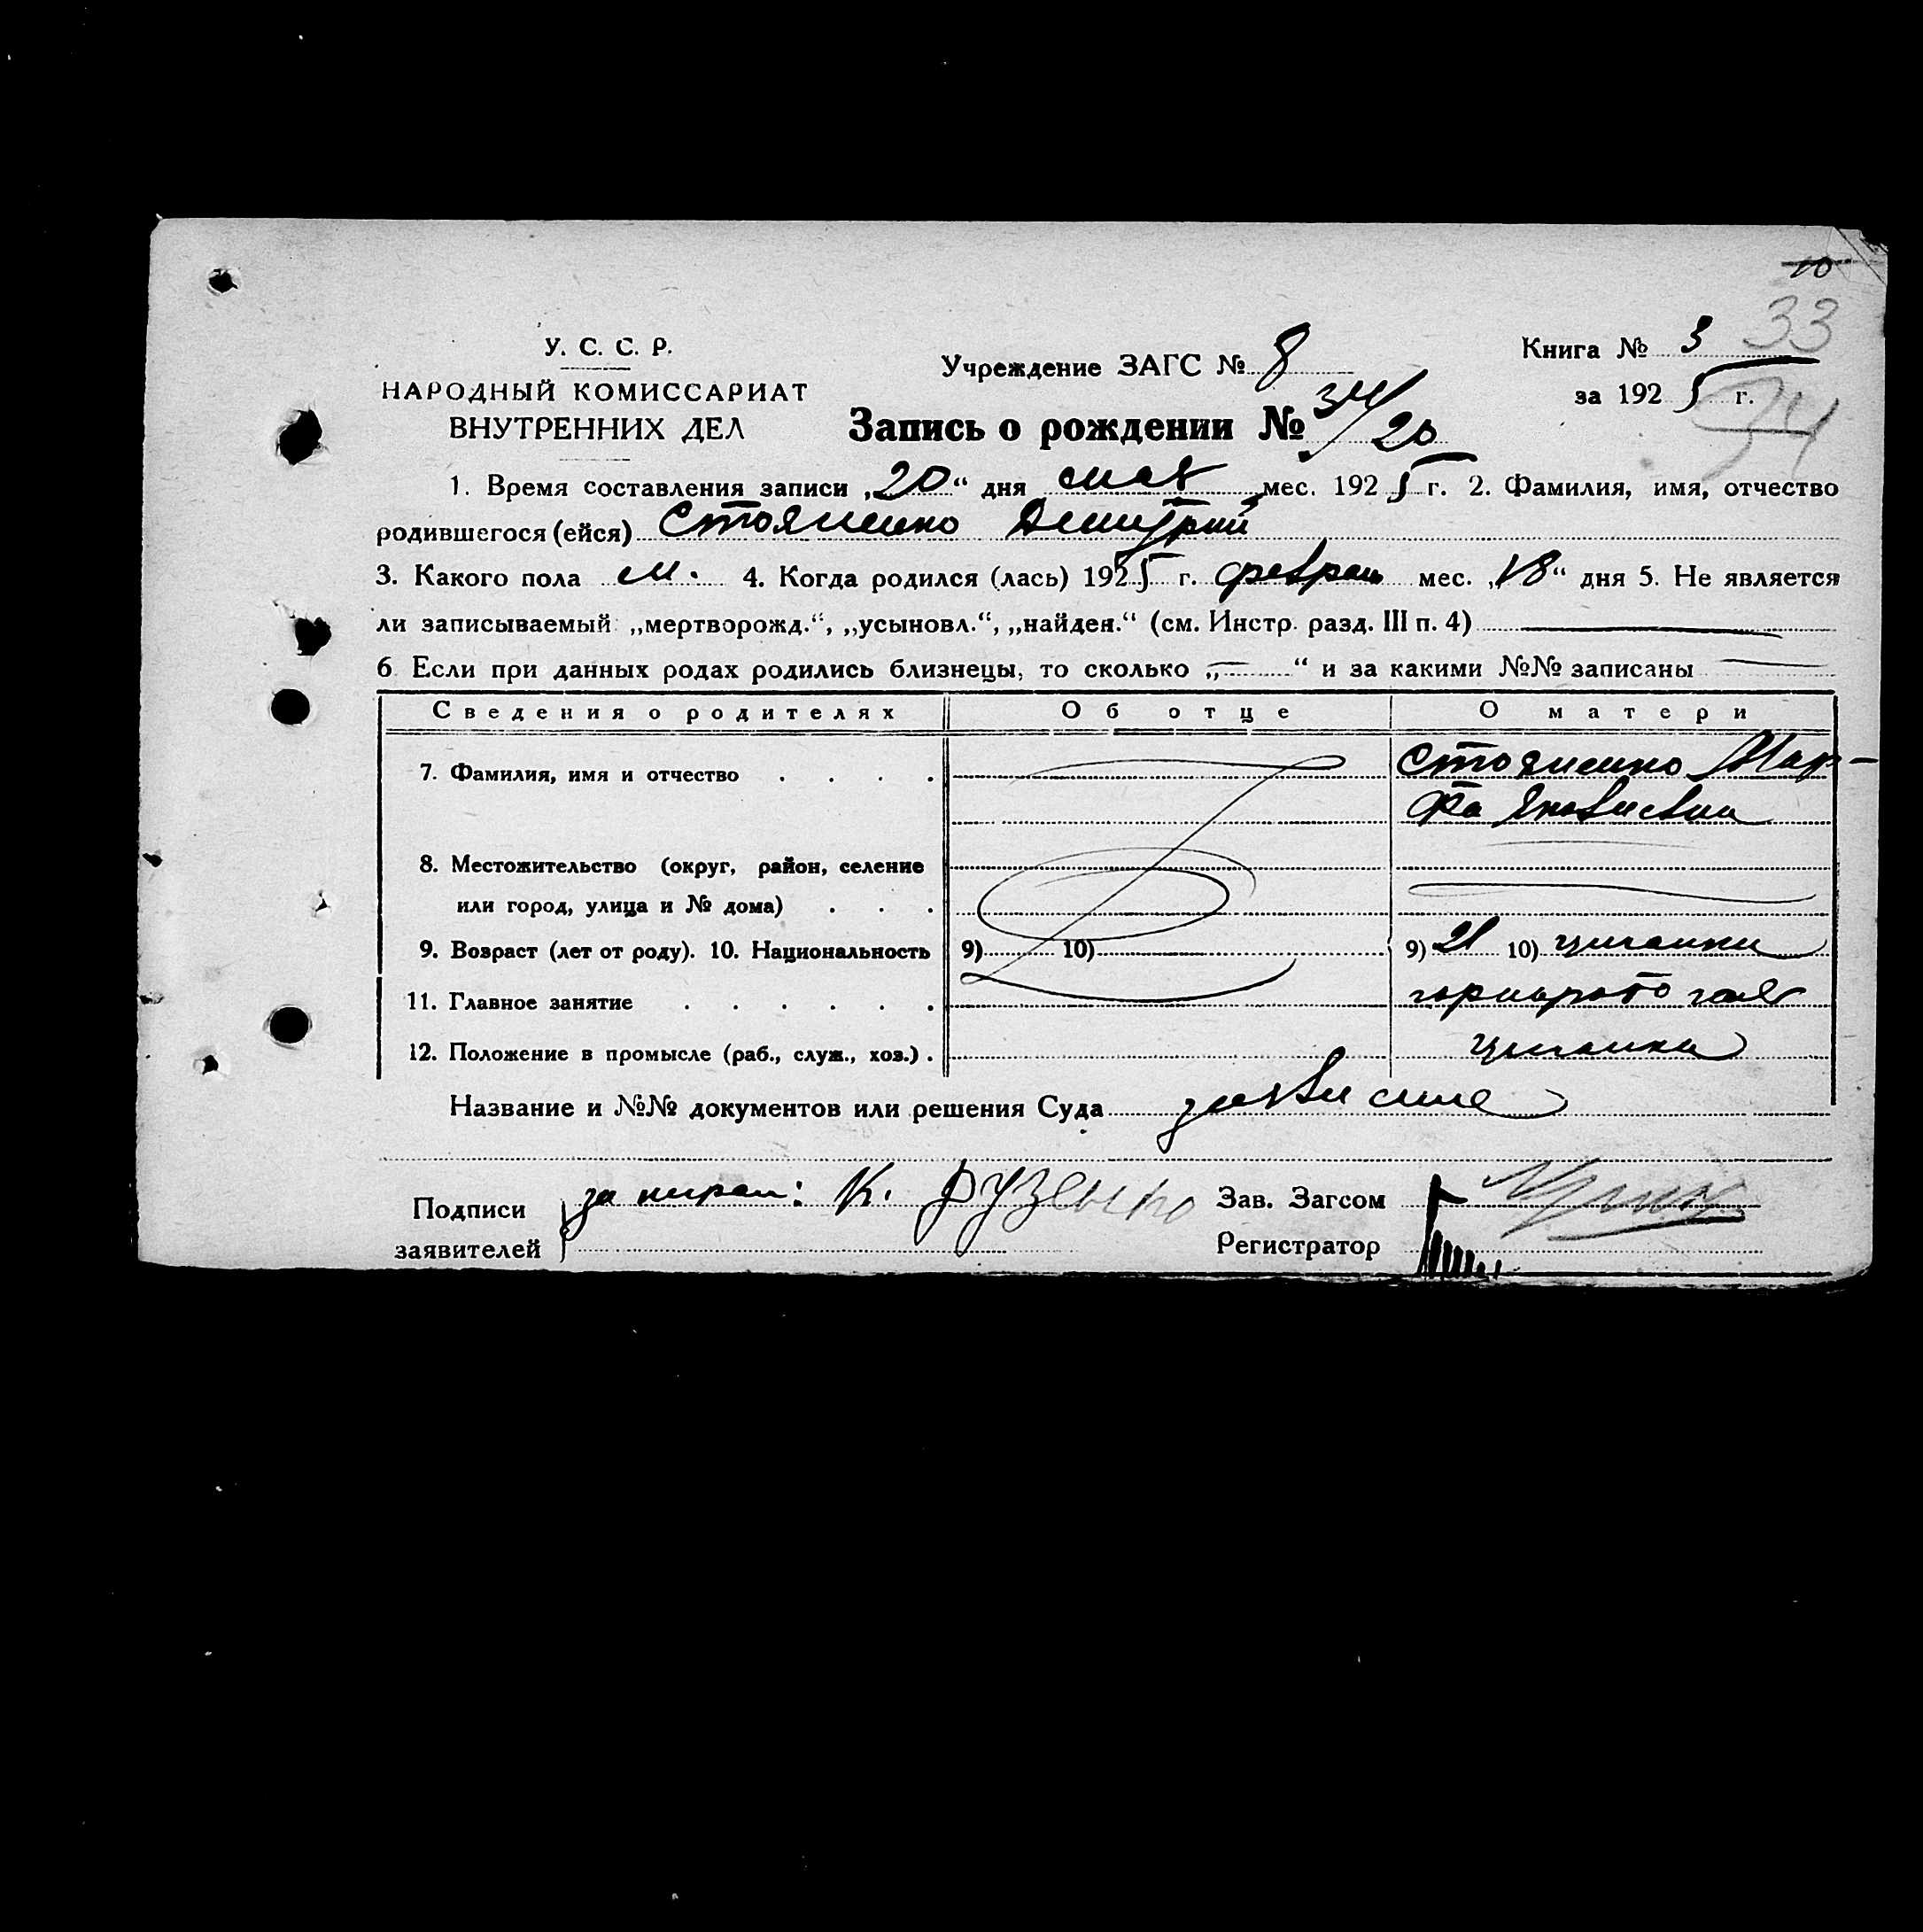 10
33
У. С. С. Р.
Учреждение ЗАГС № 8
Книга № 3
НАРОДНЫЙ КОМИССАРИАТ
за 1925 г.
34
ВНУТРЕННИХ ДЕЛ
Запись о рождении № 34/20
1. Время составления записи „20“ дня мая мес. 1925 г. 2. Фамилия, имя, отчество
родившегося (ейся) Стояненко Дмитрий
3. Какого пола м. 4. Когда родился (лась) 1925 г. феврал мес. „18“ дня 5. Не является
ли записываемый: „мертворожд.“, „усыновл.“, „найден.“ (см. Инстр. разд. III п. 4)
6 Если при данных родах родились близнецы, то сколько „—“ и за какими №№ записаны —
Сведения о родителях Об отце О матери
7. Фамилия, имя и отчество . . . . Стояненко Мар-
фа
8. Местожительство (округ, район, селение
или город, улица и № дома) . . .
9. Возраст (лет от роду). 10. Национальность 9) 10) 9) 21 10) циганка
11. Главное занятие . . . . . .
12. Положение в промысле (раб., служ., хоз.) . циганка
Название и №№ документов или решения Суда
Подписи за К. Зав. Загсом
заявителей Регистратор